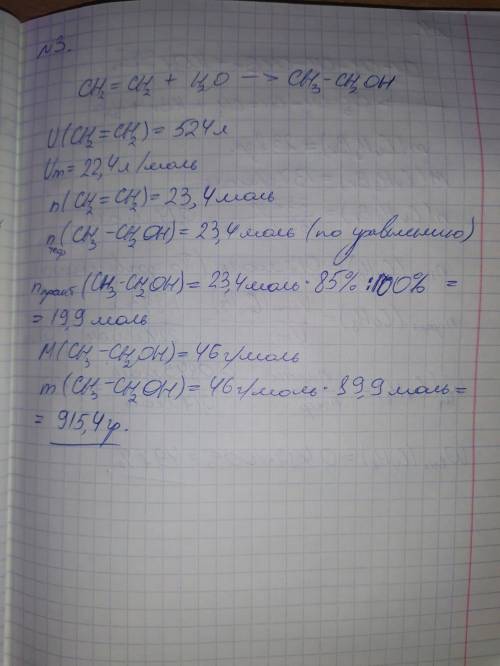 №3.
CH₂=CH₂ + H₂O —> CH₃-CH₂OH
V(CH₂=CH₂)= 524л
Vm= 22,4л/моль
n(CH₂=CH₂)= 23,4моль
n теор(CH₃-CH₂OH)= 23,4моль (по уравнению)
n практ(CH₃-CH₂OH)= 23,4моль·85%:100% =
= 19,9моль
M(CH₃-CH₂OH)= 46г/моль
m(CH₃-CH₂OH)= 46г/моль·19,9моль=
= 915,4гр.